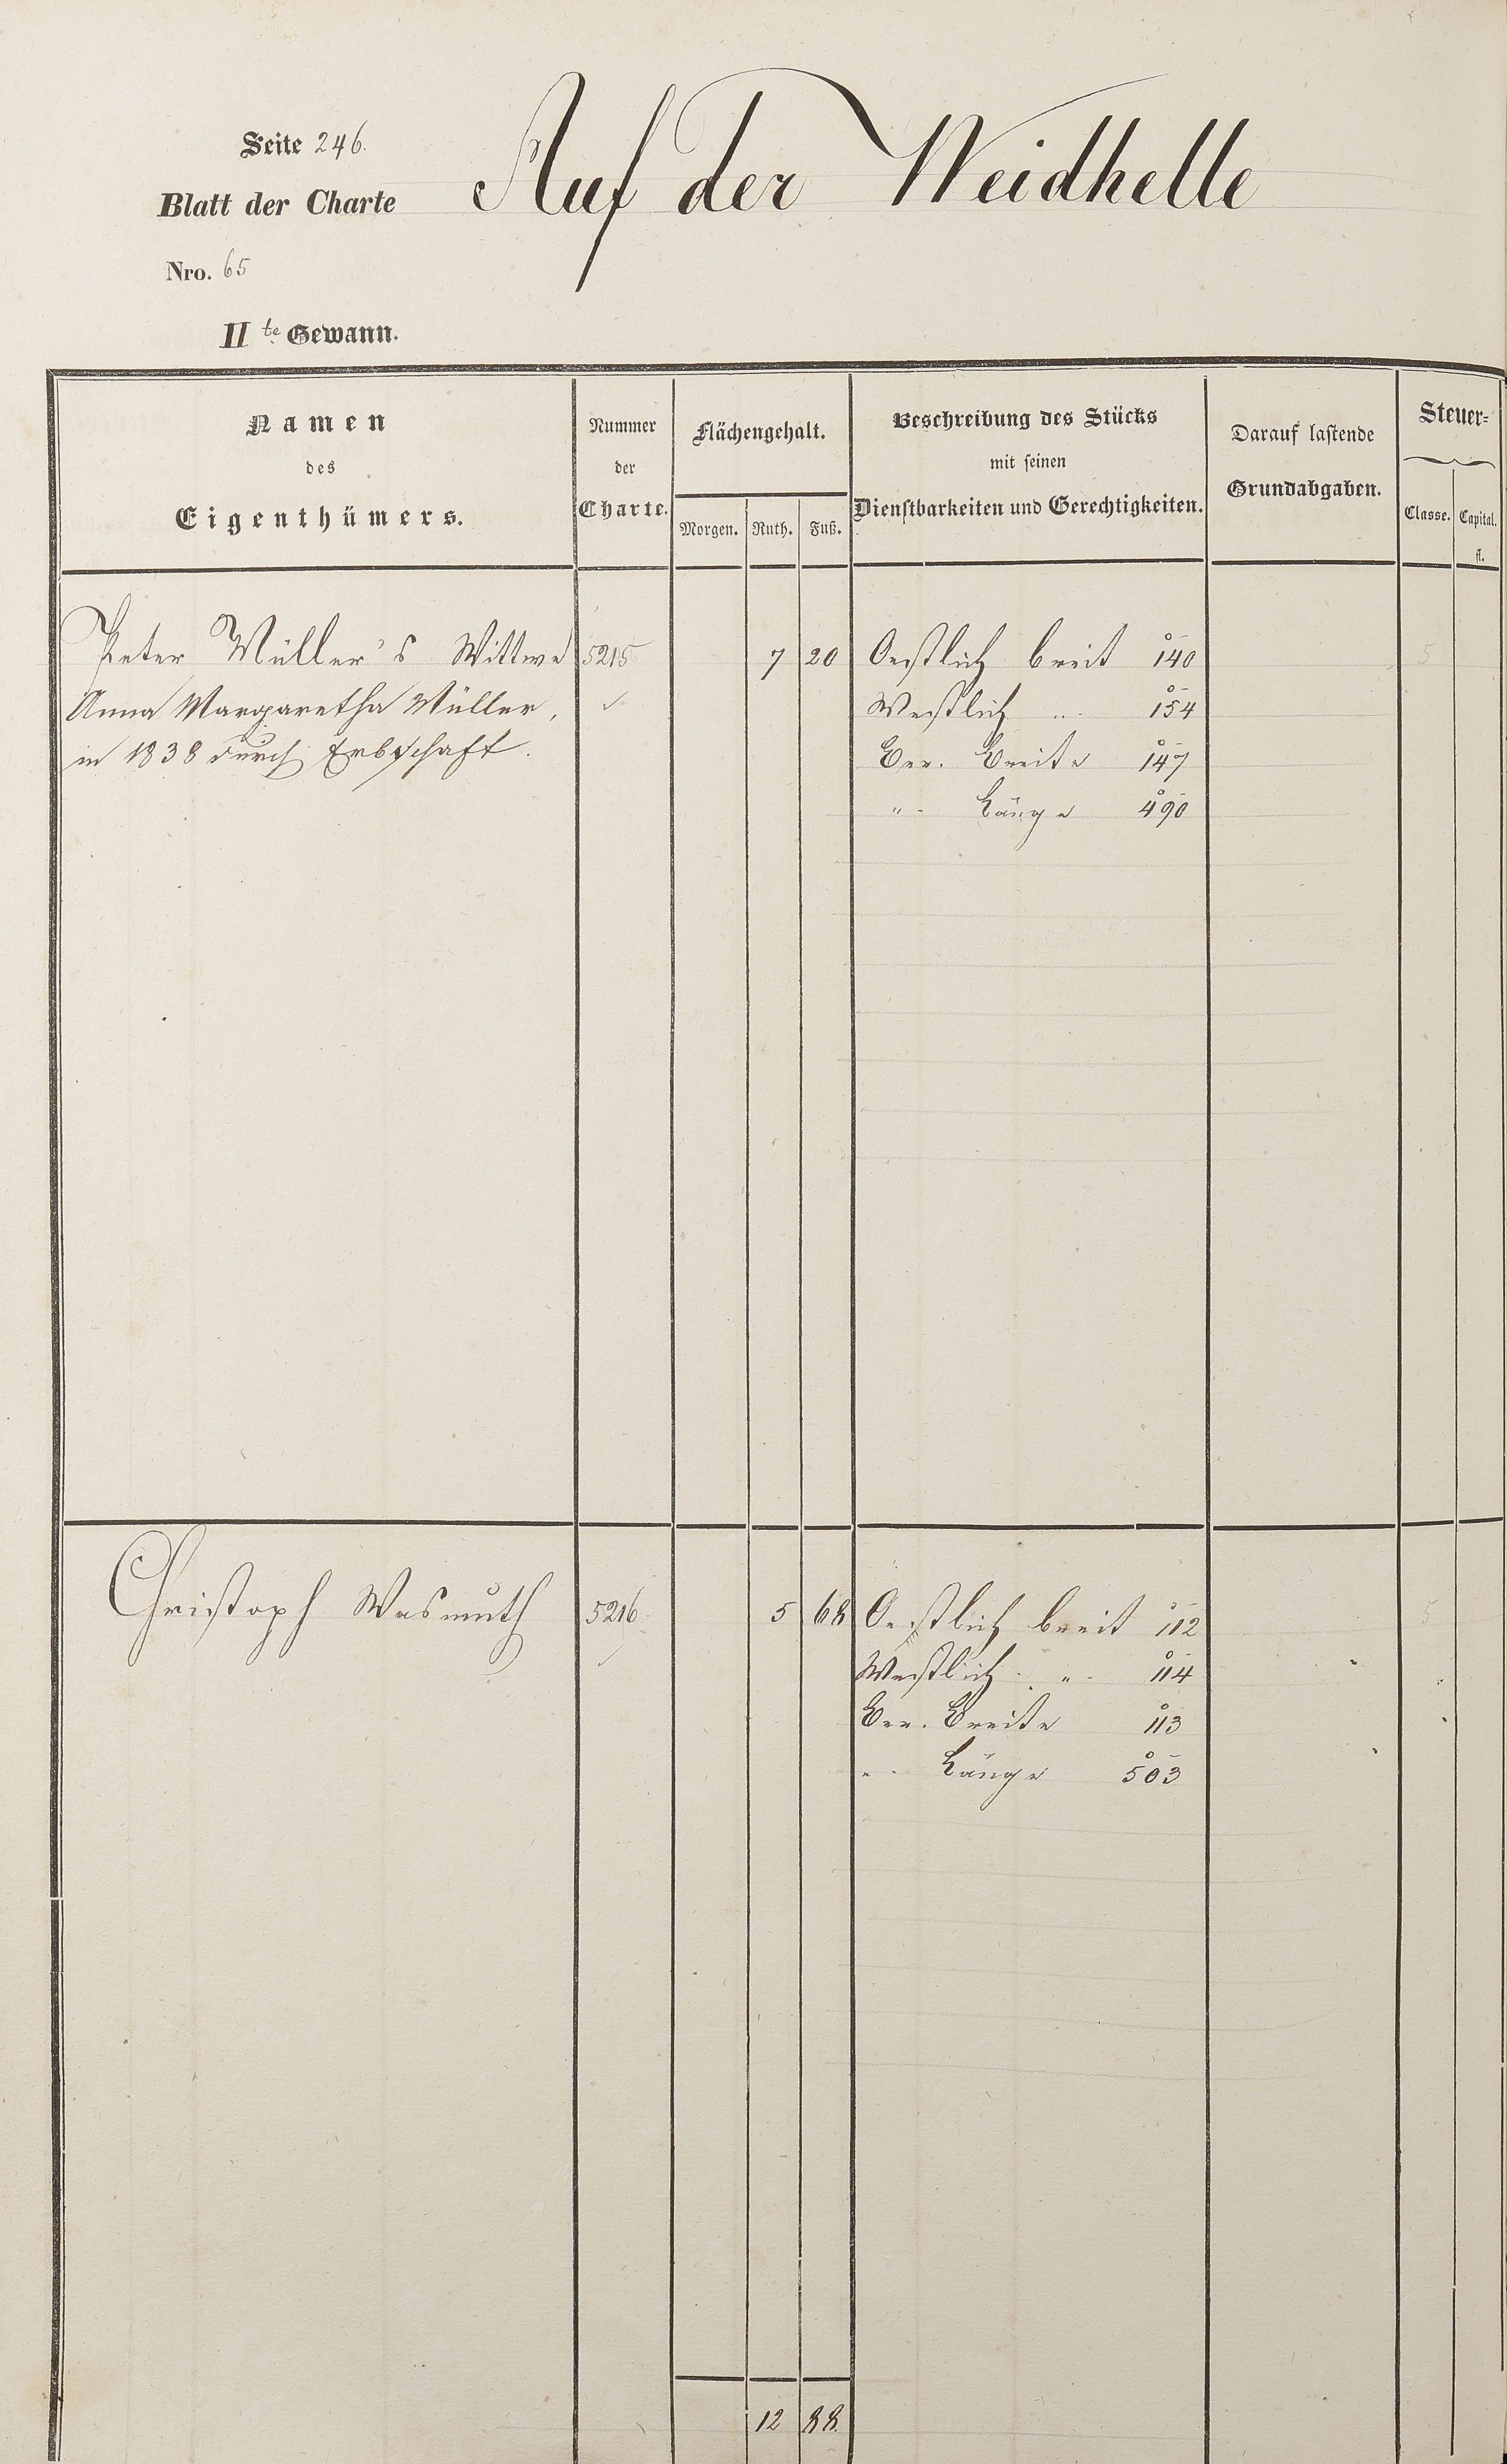 Seite 246.
Blatt der Charte
Auf der Weidhelle
Nro. 65
IIte Gewann.
Namen
des
Eigenthümers.
Nummer
der
Charte.
Flächengehalt.
Morgen. Ruth. Fuß.
Beschreibung des Stücks
mit seinen
Dienstbarkeiten und Gerechtigkeiten.
Darauf lastende
Grundabgaben.
Steuer=
Classe. Capital.
fl.
Peter Müller's Wittwe 5215 7 20 Oestlich breit 140 5
Anna Margaretha Müller, Westlich " 154
in 1838 durch Erbschaft. Ber. Breite 147
" Länge 490
Christoph Wasmuth 5216. 5 68 Oestlich breit 112 5
Westlich " 114
Ber. Breite 113
" Länge 503
12 88.